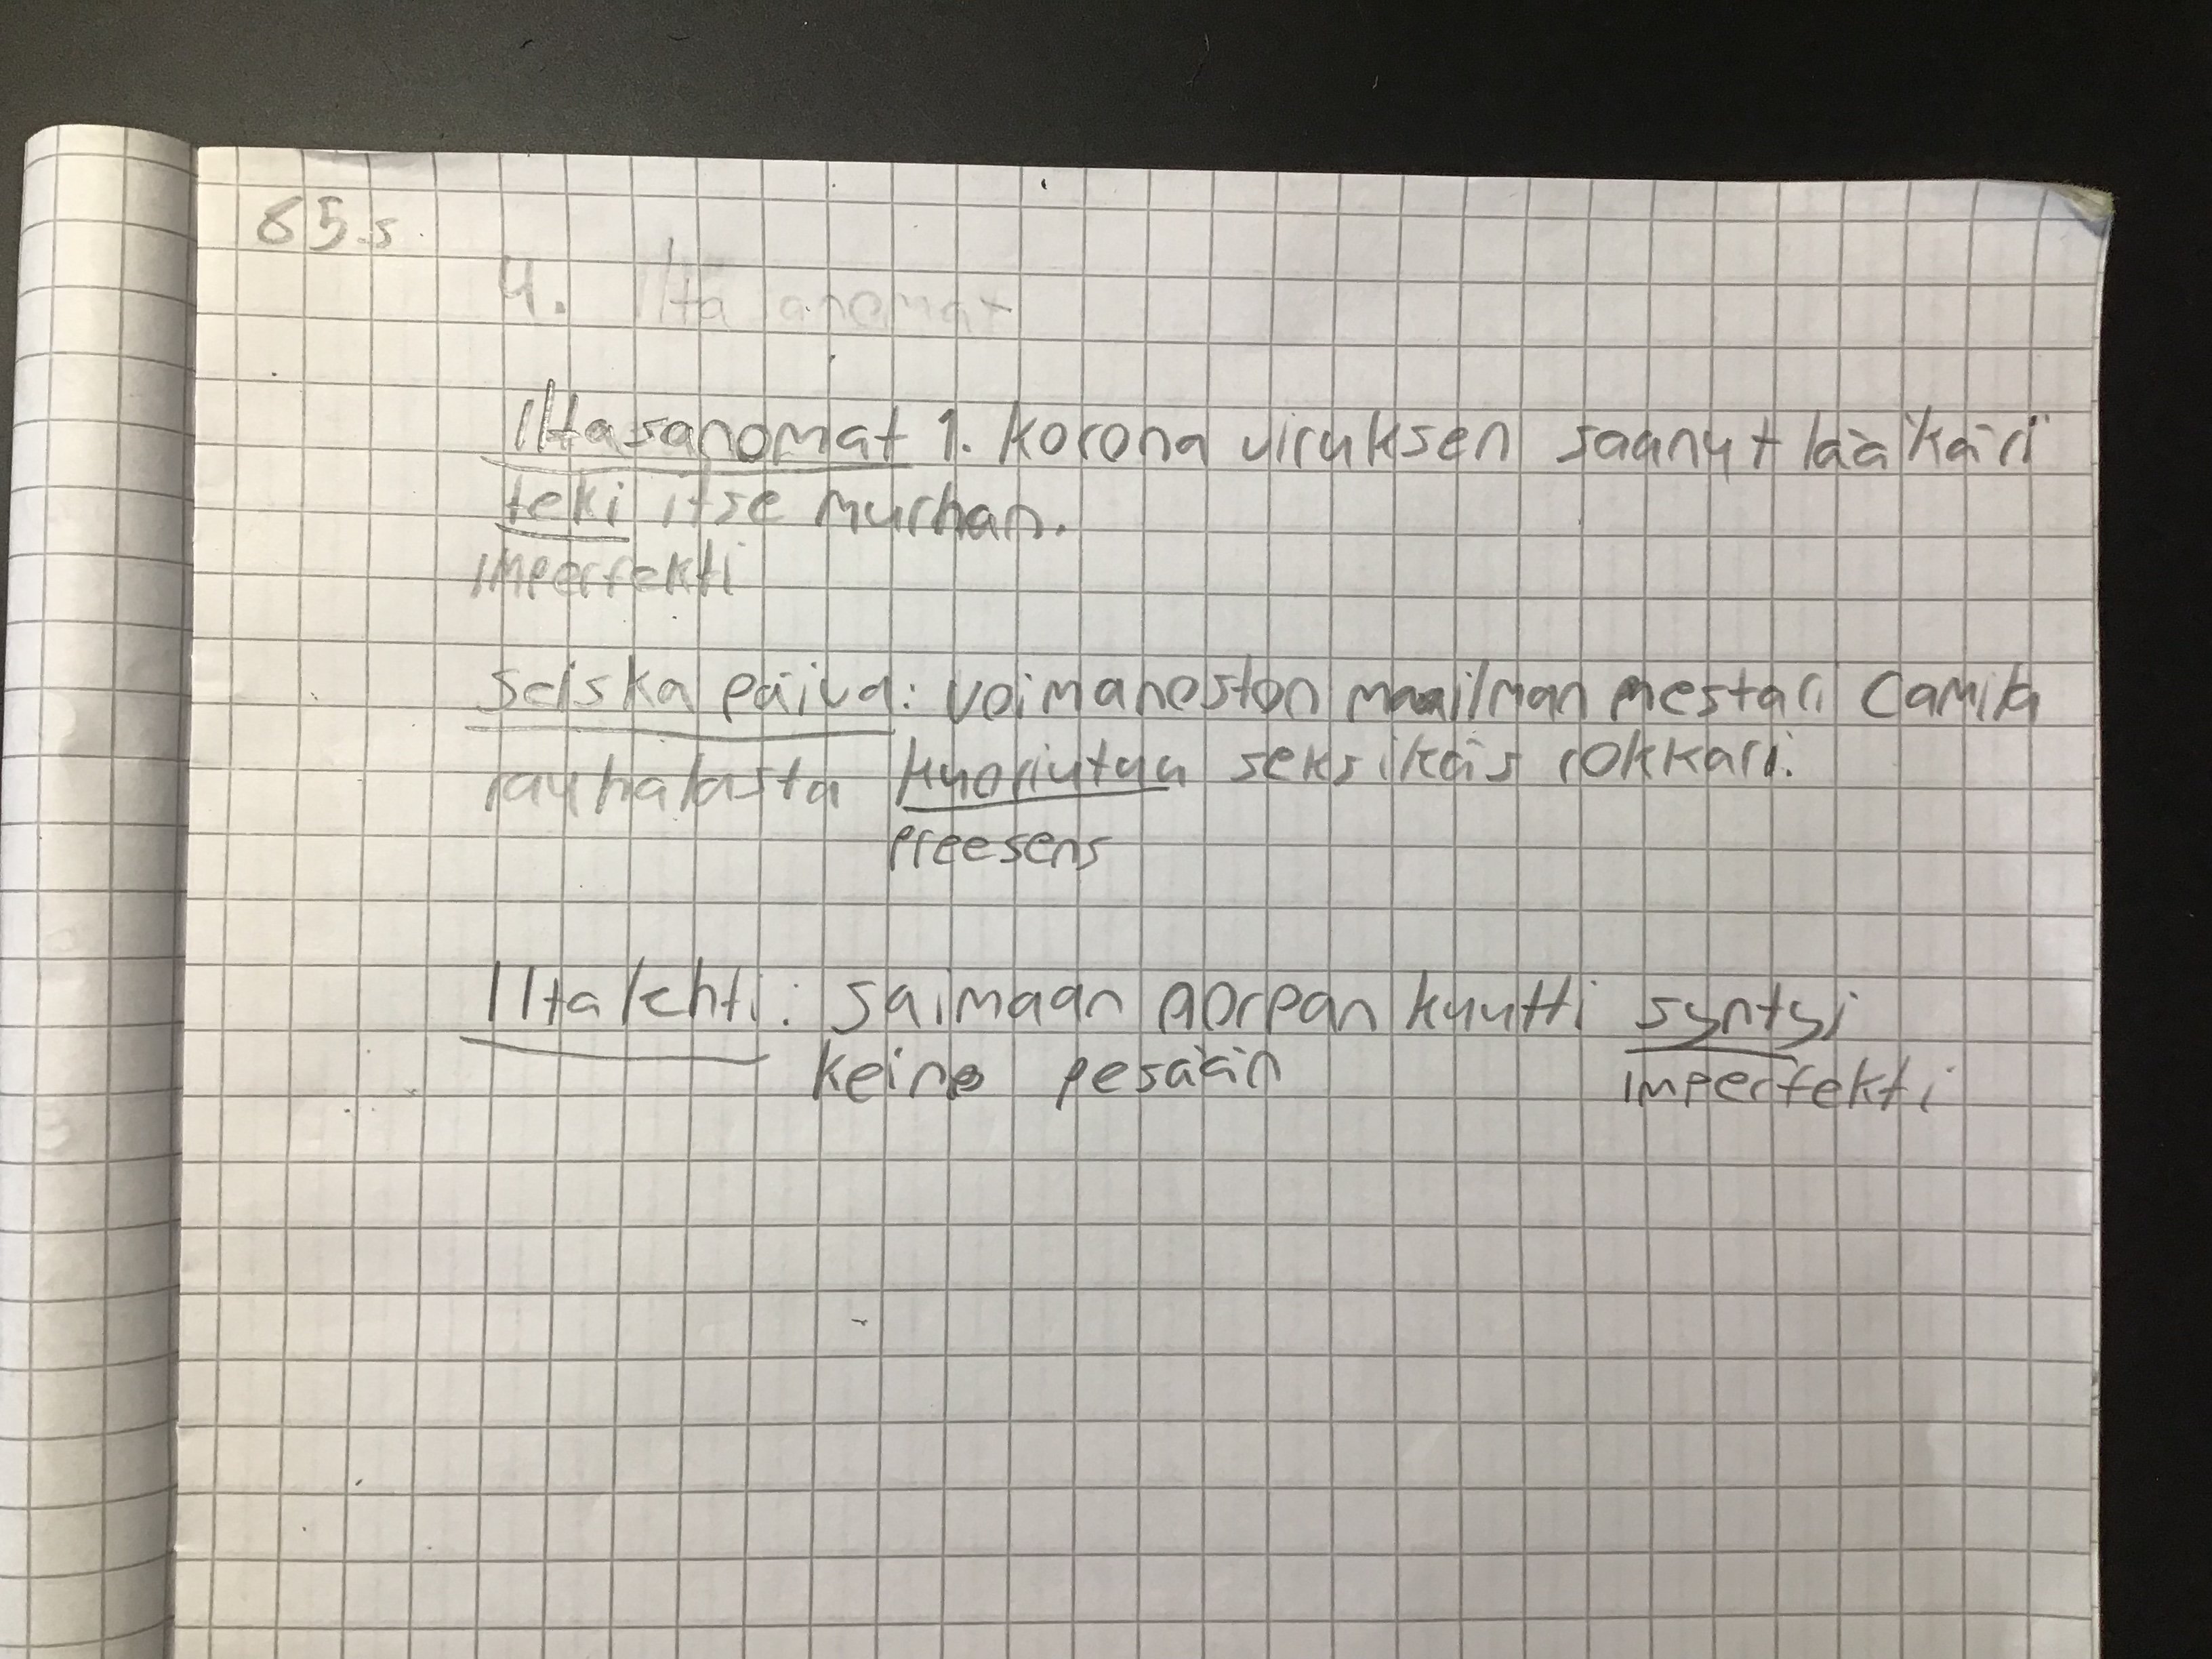 85.s
4. Ilta sanomat
Iltasanomat 1. korona viruksen saanut lääkäri
teki itse murhan.
imperfekti
seiska päivä: voimanoston maailman mestari Camila
rauhalasta kuoriutuu seksikäs rokkari.
preesens
Iltalehti: saimaan norpan kuutti syntyi
keino pesään imperfekti